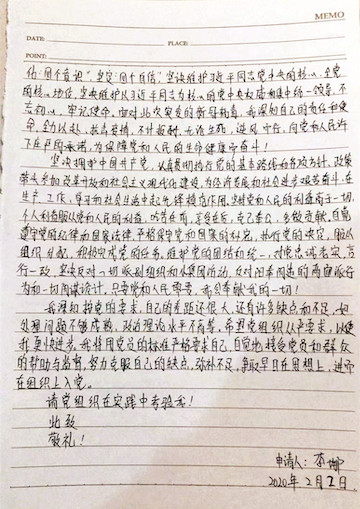 MEMO
DATE:
PLACE:
POINT:
"四个意识" 坚定"四个自信" 坚决维护习近平同志党中央的核心、全党
的核心地位,坚决维护以习近平同志为核心的党中央权威和集中统一领导,不
忘初心,牢记使命,面对此次突发的新冠病毒,我深知自己的责任和使
命,全力以赴,救死扶伤,不计报酬,无论生死,迎风前行,向党和人民许
下庄严承诺,为保障党和人民的生命健康而奋斗!
坚决拥护中国共产党,认真贯彻执行党的基本路线和各项方针、政策
带头参加改革开放和社会主义现代化建设,为经济发展和社会进步艰苦奋斗,在
生产、工作、学习和社会生活中起先锋模范作用,坚持党和人民的利益高于一切,
个人利益服从党和人民的利益,吃苦在前,享受在后,克己奉公,多做贡献,自觉
遵守党的纪律和国家法律,严格保守党和国家的秘密,执行党的决定,服从
组织分配,积极完成党的任务,维护党的团结和统一,对党忠诚老实,言
行一致,坚决反对一切派别组织和小集团活动,反对阳奉阴违的两面派行
为和一切阴谋诡计,只要党和人民需要,我会奉献我的一切!
我深知按党的要求,自己的差距还很大,还有许多缺点和不足,如
处理问题不够成熟,政治理论水平不高等,希望党组织从严要求,以使
我更快进步,我将用党员的标准严格要求自己,自觉地接受党员和群众
的帮助与监督,努力克服自己的缺点,弥补不足,争取早日在思想上,进而
在组织上入党。
请党组织在实践中考验我!
此致
敬礼!
申请人:
2020年2月2日